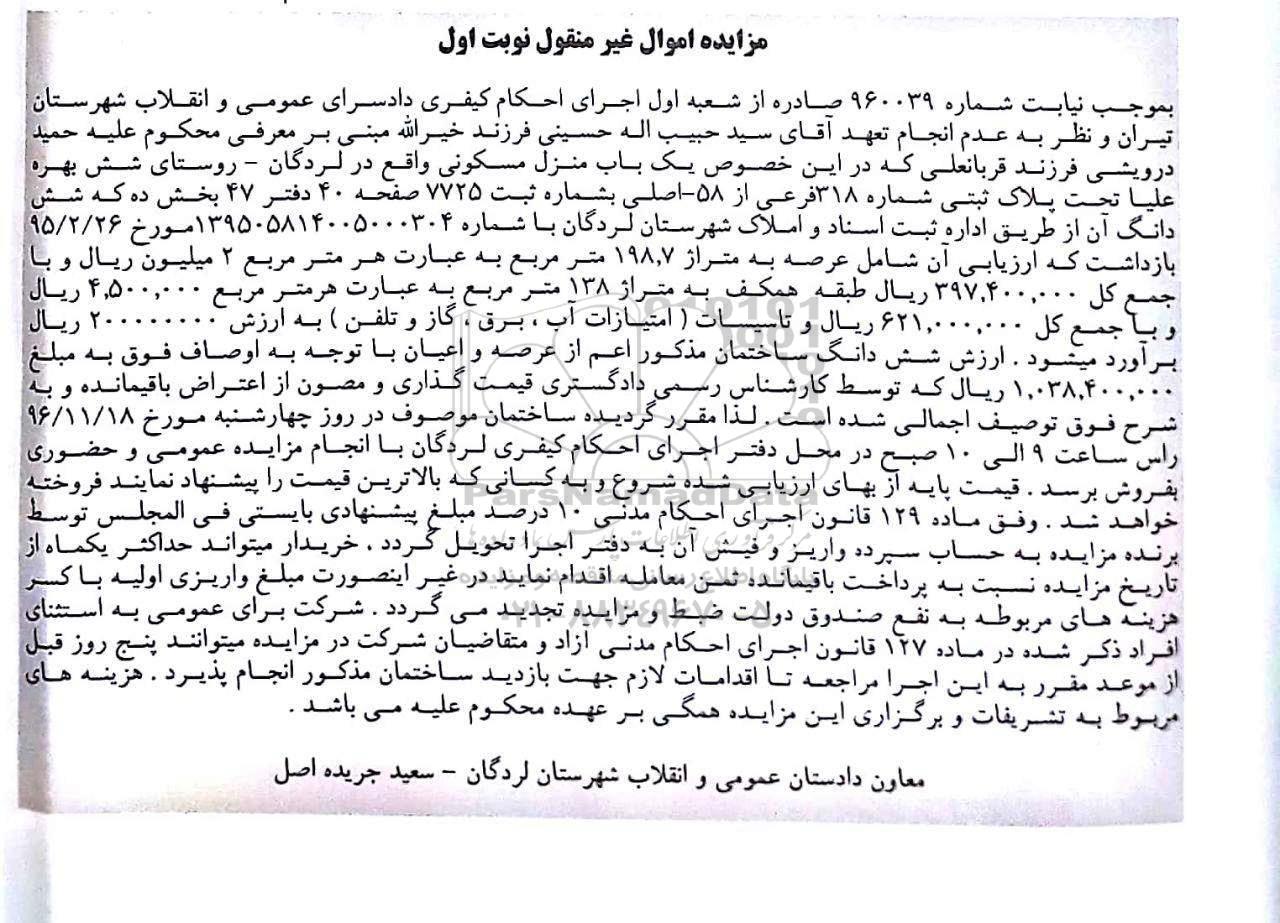 مزایده اموال غیر منقول نوبت اول
بموجب نیابت شماره ۹۶۰۰۳۹ صادره از شعبه اول اجرای احکام کیفری دادسرای عمومی و انقلاب شهرستان
تیران و نظر به عدم انجام تعهد آقای سید حبیب اله حسینی فرزند خیرالله مبنی بر معرفی محکوم علیه حمید
درویشی فرزند قربانعلی که در این خصوص یک باب منزل مسکونی واقع در لردگان – روستای شش بهره
علیا تحت پلاک ثبتی شماره ۳۱۸فرعی از ۵۸-اصلی بشماره ثبت ۷۷۲۵ صفحه ۴۰ دفتر ۴۷ بخش ده که شش
دانگ آن از طریق اداره ثبت اسناد و املاک شهرستان لردگان با شماره ۱۳۹۵۰۵۸۱۴۰۰۵۰۰۰۳۰۴مورخ ۹۵/۲/۲۶
بازداشت که ارزیابی آن شامل عرصه به متراژ ۱۹۸,۷ متر مربع به عبارت هر متر مربع ۲ میلیون ریال و با
جمع کل ۳۹۷,۴۰۰,۰۰۰ ریال طبقه همکف به متراژ ۱۳۸ متر مربع به عبارت هرمتر مربع ۴,۵۰۰,۰۰۰ ریال
و با جمع کل ۶۲۱,۰۰۰,۰۰۰ ریال و تاسیسات ( امتیازات آب ، برق ، گاز و تلفن ) به ارزش ۲۰۰۰۰۰۰۰۰ ریال
برآورد میشود . ارزش شش دانگ ساختمان مذکور اعم از عرصه و اعیان با توجه به اوصاف فوق به مبلغ
۱,۰۳۸,۴۰۰,۰۰۰ ریال که توسط کارشناس رسمی دادگستری قیمت گذاری و مصون از اعتراض باقیمانده و به
شرح فوق توصیف اجمالی شده است . لذا مقرر گردیده ساختمان موصوف در روز چهارشنبه مورخ ۹۶/۱۱/۱۸
راس ساعت ۹ الی ۱۰ صبح در محل دفتر اجرای احکام کیفری لردگان با انجام مزایده عمومی و حضوری
بفروش برسد . قیمت پایه از بهای ارزیابی شده شروع و به کسانی که بالاترین قیمت را پیشنهاد نمایند فروخته
خواهد شد . وفق ماده ۱۲۹ قانون اجرای احکام مدنی ۱۰ درصد مبلغ پیشنهادی بایستی فی المجلس توسط
برنده مزایده به حساب سپرده واریز و فیش آن به دفتر اجرا تحویل گردد . خریدار میتواند حداکثر یکماه از
تاریخ مزایده نسبت به پرداخت باقیمانده ثمن معامله اقدام نماید در غیر اینصورت مبلغ واریزی اولیه با کسر
هزینه های مربوطه به نفع صندوق دولت ضبط و مزایده تجدید می گردد . شرکت برای عمومی به استثنای
افراد ذکر شده در ماده ۱۲۷ قانون اجرای احکام مدنی ازاد و متقاضیان شرکت در مزایده میتوانند پنج روز قبل
از موعد مقرر به این اجرا مراجعه تا اقدامات لازم جهت بازدید ساختمان مذکور انجام پذیرد . هزینه های
مربوط به تشریفات و برگزاری این مزایده همگی بر عهده محکوم علیه می باشد .
معاون دادستان عمومی و انقلاب شهرستان لردگان – سعید جریده اصل
ParsNamadData